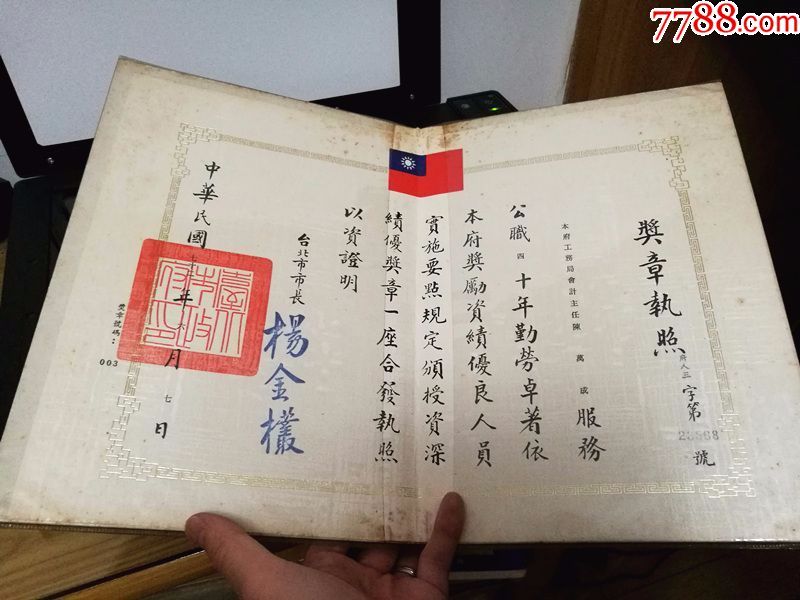 7788.com
獎章執照
府人三字第
號
本府工務局會計主任陳萬成服務
公職四十年勤勞卓著依
本府獎勵資績優良人員
實施要點規定頒授資深
績優獎章一座合發執照
以資證明
台北市市長
楊金欉
中華民國 年六月七日
臺北市政府印
獎章號碼：003